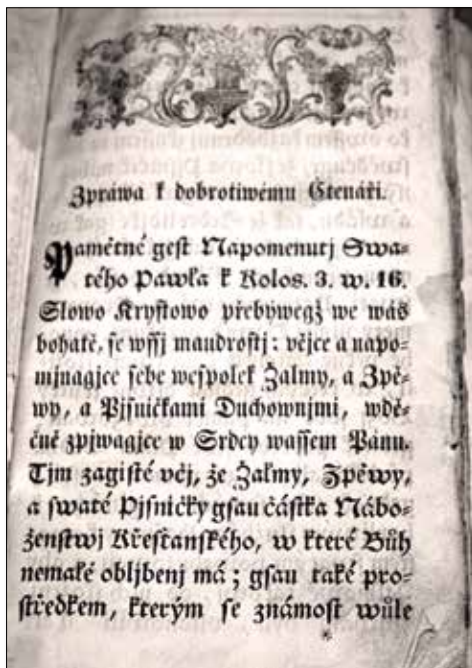 Zpráwa k dobrotiwému Čtenáři.
Pamětné gest Napomenutj Swa-
tého Pawła k Kolos. 3. w. 16.
Slowo Krystowo přebýwegž we wás
bohatě, se wssj maudrostj: včjce a napo-
mjnagjce sebe wespolek Žalmy, a Zpě-
wy, a Pjsničkami Duchownjmi, wdě-
čně zpjwagjce w Srdcy wassem Pánu.
Tjm zagisté včj, že Žalmy, Zpěwy,
a swaté Pjsničky gsau částka Nábo-
ženstwj Křestanského, w které Bůh
nemałé obljbenj má; gsau také pro-
středkem, kterým se známost wůle
*